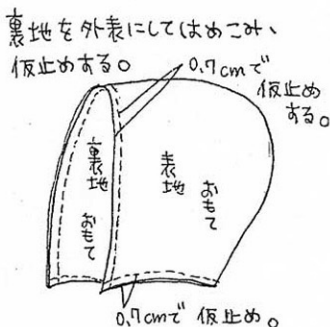 裏地を外表にしてはめこみ、
仮止めする。
0.7cmで
仮止め
する。
裏地
おもて
表地
おもて
0.7cmで 仮止め。